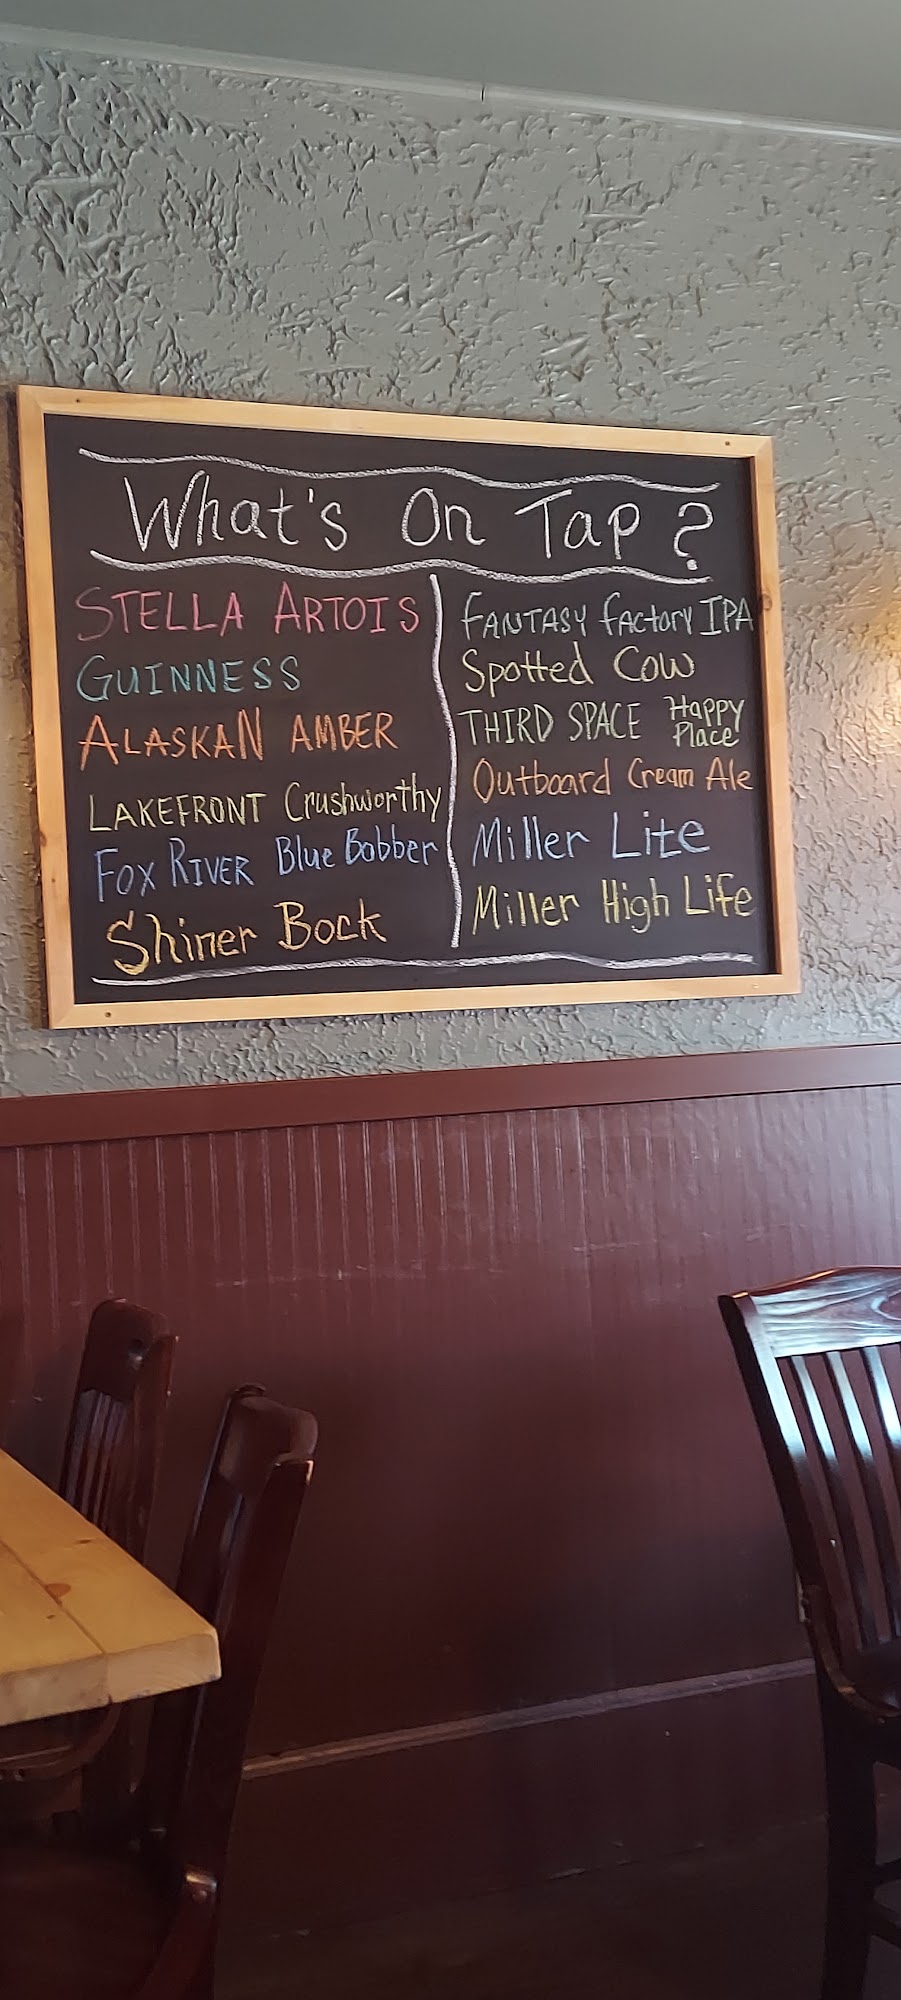 What's On Tap?
STELLA ARTOIS
GUINNESS
ALASKAN AMBER
LAKEFRONT Crushworthy
FOX RIVER Blue Bobber
Shiner Bock
FANTASY Factory IPA
Spotted Cow
THIRD SPACE Happy
Place
Outboard Cream Ale
Miller Lite
Miller High Life